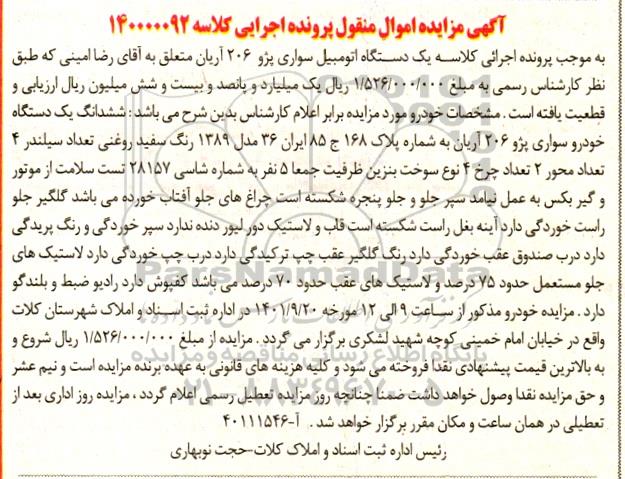 آگهی مزایده اموال منقول پرونده اجرایی کلاسه ۱۴۰۰۰۰۰۹۲
به موجب پرونده اجرائی کلاسه یک دستگاه اتومبیل سواری پژو ۲۰۶ آریان متعلق به آقای رضا امینی که طبق
نظر کارشناس رسمی به مبلغ ۱/۵۲۶/۰۰۰/۰۰۰ ریال یک میلیارد و پانصد و بیست و شش میلیون ریال ارزیابی و
قطعیت یافته است . مشخصات خودرو مورد مزایده برابر اعلام کارشناس بدین شرح می باشد : ششدانگ یک دستگاه
خودرو سواری پژو ۲۰۶ آریان به شماره پلاک ۱۶۸ ج ۸۵ ایران ۳۶ مدل ۱۳۸۹ رنگ سفید روغنی تعداد سیلندر ۴
تعداد محور ۲ تعداد چرخ ۴ نوع سوخت بنزین ظرفیت جمعا ۵ نفر به شماره شاسی ۲۸۱۵۷ تست سلامت از موتور
و گیر بکس به عمل نیامد سپر جلو و جلو پنجره شکسته است چراغ های جلو آفتاب خورده می باشد گلگیر جلو
راست خوردگی دارد آینه بغل راست شکسته است قاب و لاستیک دور لیور دنده ندارد سپر خوردگی و رنگ پریدگی
دارد درب صندوق عقب خوردگی دارد رنگ گلگیر عقب چپ ترکیدگی دارد درب چپ خوردگی دارد لاستیک های
جلو مستعمل حدود ۷۵ درصد و لاستیک های عقب حدود ۷۰ درصد می باشد کفپوش دارد رادیو ضبط و بلندگو
دارد . مزایده خودرو مذکور از ساعت ۹ الی ۱۲ مورخه ۱۴۰۱/۹/۲۰ در اداره ثبت اسناد و املاک شهرستان کلات
واقع در خیابان امام خمینی کوچه شهید لشکری برگزار می گردد . مزایده از مبلغ ۱/۵۲۶/۰۰۰/۰۰۰ ریال شروع و
به بالاترین قیمت پیشنهادی نقدا فروخته می شود و کلیه هزینه های قانونی به عهده برنده مزایده است و نیم عشر
و حق مزایده نقدا وصول خواهد داشت ضمنا چنانچه روز مزایده تعطیل رسمی اعلام گردد ، مزایده روز اداری بعد از
تعطیلی در همان ساعت و مکان مقرر برگزار خواهد شد . آ-۴۰۱۱۱۵۴۶
رئیس اداره ثبت اسناد و املاک کلات-حجت نوبهاری
ParsNamadData
پایگاه اطلاع رسانی مناقصه و مزایده
۰۲۱-۸۸۳۴۹۶۷۰-۵